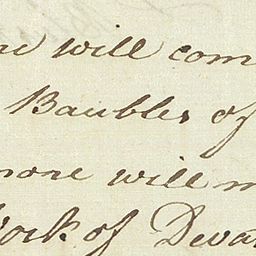 will com
Baubles of
more will m
Work of Deva